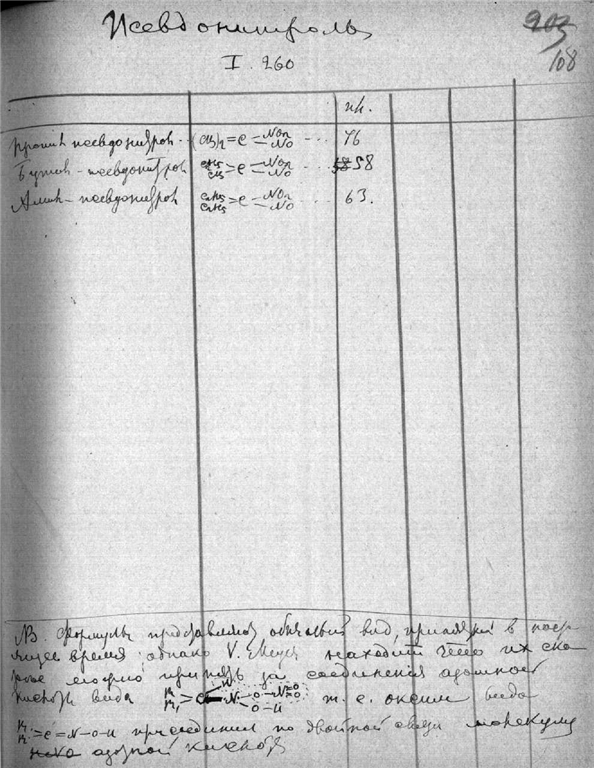 Псевдонитролы
203
108
I. 260
пл.
Пропил псевдонитрол .. (CH3)2 = C NO2 NO ... 76
Бутил - псевдонитрол C2H5 CH3 > C NO2 NO ... 58
Амил - псевдонитрол C2H5 C2H5 > C NO2 NO ... 63.
NB. Формулы представляют обычный вид, принятый в настоящее
время; однако V. Meyer находит что их скорее
можно принять за соединения азотной
кислоты вида т. е. оксим вида
R R > C = N - O - H присоединил по двойной связи молекулу
азотной кислоты